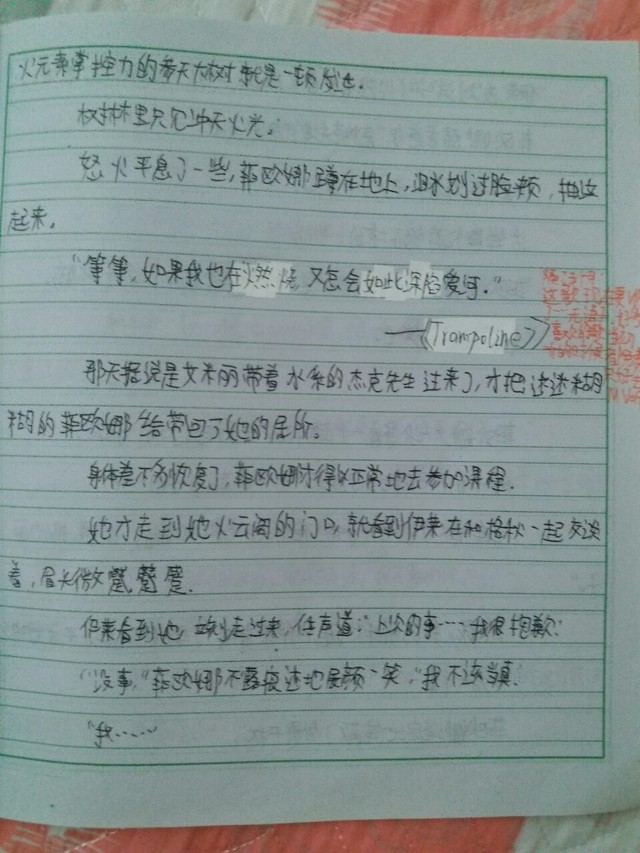 火元素掌控力的参天大树就是一顿发泄.
树林里只见冲天火光。
怒火平息了一些,菲欧娜蹲在地上,泪水划过脸颊,抽泣
起来。
“等等,如果我也在燃烧,又怎会如此深陷爱河.”
——《Trampoline》
那天据说是艾米丽带着水系的杰克先生过来了,才把迷迷糊
糊的菲欧娜给带回了她的居所。
身体差不多恢复了,菲欧娜才得以正常地去参加课程.
她才走到她火云阁的门口,就看到伊莱在和格秋一起交谈
着,眉头微
伊莱看到她,走过来,低声道:“上次的事……我很抱歉.”
“没事,”菲欧娜不露痕迹地展颜一笑,“我不该当真.
“我……